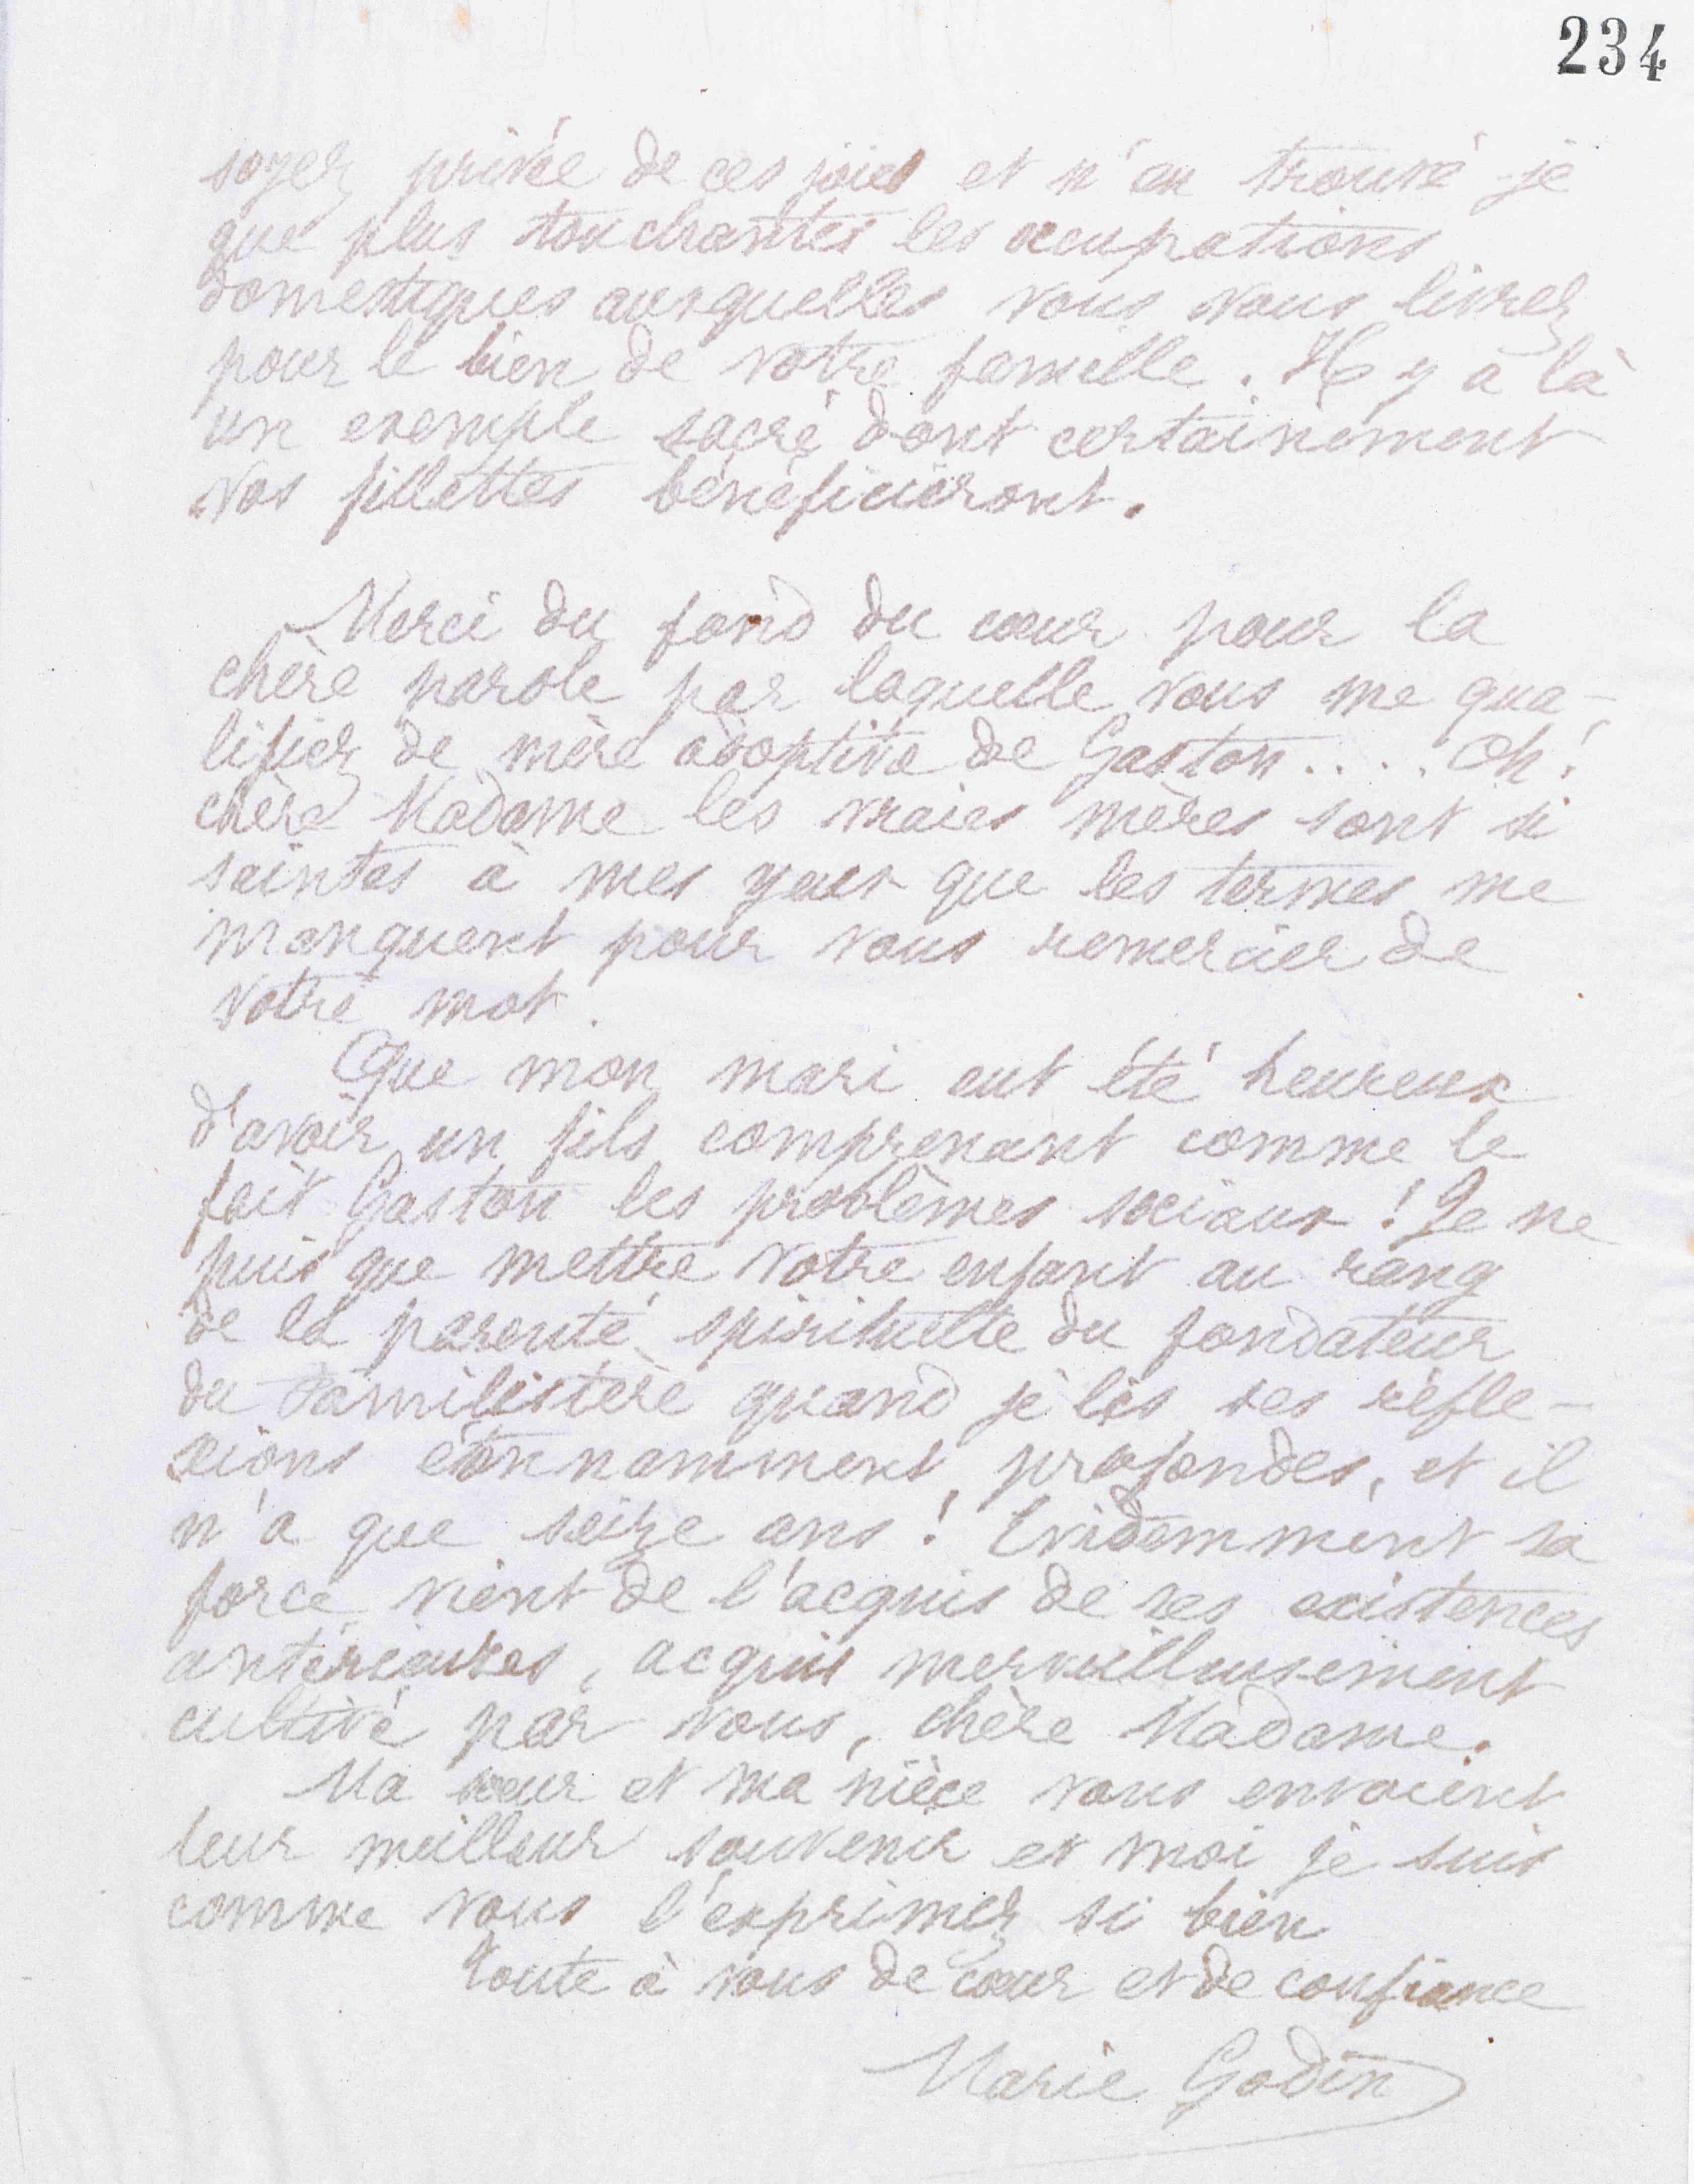 234
soyez privée de ces joies et n'en trouvé-je
que plus touchantes les occupations
domestiques auxquelles vous vous livrez
pour le bien de votre famille. Il y a là
un exemple sacré dont certainement
vos fillettes bénéficieront.
Merci du fond du cœur pour la
chère parole par laquelle vous me qua-
lifiez de mère adoptive de Gaston.... Oh!
chère Madame les vraies mères sont si
saintes à mes yeux que les termes me
manquent pour vous remercier de
votre mot.
Que mon mari eut été heureux
d'avoir un fils comprenant comme le
fait Gaston les problèmes sociaux! Je ne
puis que mettre votre enfant au rang
de la parenté spirituelle du fondateur
du Familistère quand je lis ses réfle-
xions étonnamment profondes, et il
n'a que seize ans! Evidemment sa
force vient de l'acquis de ses existences
antérieures, acquis merveilleusement
cultivé par vous, chère Madame.
Ma sœur et ma nièce vous envoient
leur meilleur souvenir et moi je suis
comme vous l'exprimez si bien
toute à vous de cœur et de confiance
Marie Godin